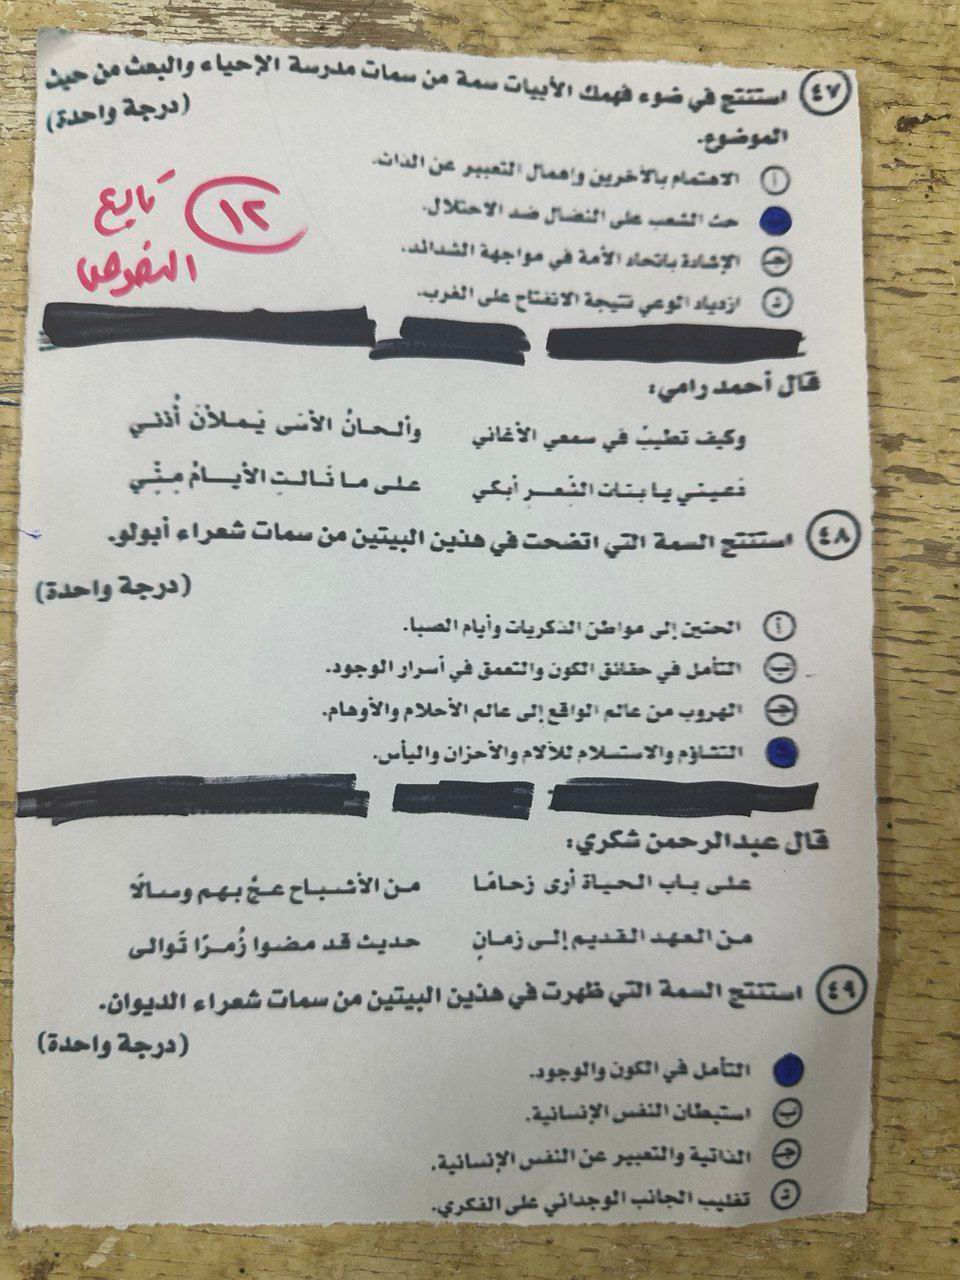 ٤٧ استنتج في ضوء فهمك الأبيات سمة من سمات مدرسة الإحياء والبعث من حيث
الموضوع. (درجة واحدة)
أ الاهتمام بالآخرين وإهمال التعبير عن الذات.
حث الشعب على النضال ضد الاحتلال.
جـ الإشادة باتحاد الأمة في مواجهة الشدائد.
د ازدياد الوعي نتيجة الانفتاح على الغرب.
١٢ تابع
النصوص
قال أحمد رامي:
وكيف تطيبُ في سمعي الأغاني وألحانُ الأسَى يَملأنَ أُذني
دَعيني يا بنات الشِّعرِ أبكي على ما نَالتِ الأيامُ مِنِّي
٤٨ استنتج السمة التي اتضحت في هذين البيتين من سمات شعراء أبولو.
(درجة واحدة)
أ الحنين إلى مواطن الذكريات وأيام الصبا.
ب التأمل في حقائق الكون والتعمق في أسرار الوجود.
جـ الهروب من عالم الواقع إلى عالم الأحلام والأوهام.
د التشاؤم والاستسلام للآلام والأحزان واليأس.
قال عبدالرحمن شكري:
على باب الحياة أرى زحامًا من الأشباح عجَّ بهم وسالَا
من العهد القديم إلى زمانٍ حديث قد مضوا زُمرًا تَوالى
٤٩ استنتج السمة التي ظهرت في هذين البيتين من سمات شعراء الديوان.
(درجة واحدة)
التأمل في الكون والوجود.
ب استبطان النفس الإنسانية.
جـ الذاتية والتعبير عن النفس الإنسانية.
د تغليب الجانب الوجداني على الفكري.